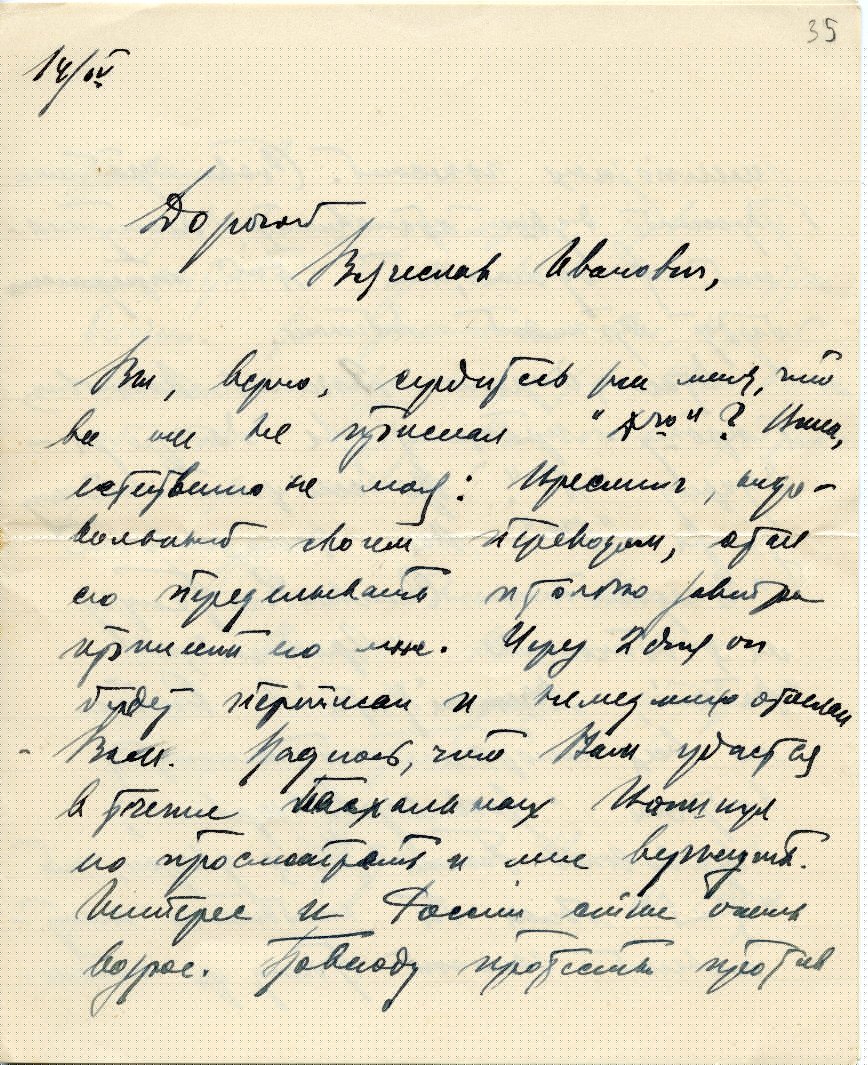 35
14/IV
Дорогой
Вячеслав Иванович,
Вы, верно, сердитесь на меня, что
я не прислал "Эхо"? Вина,
естественно не моя: Креслинг, недо-
вольный своим переводом, стал
его переделывать и только завтра
пришлет его мне. Через 2 дня он
будет переписан и немедленно отослан
Вам. Надеюсь, что Вам удастся
в течение Пасхальных каникул
его просмотреть и мне вернуть.
Интерес к России опять очень
возрос. Повсюду протесты против